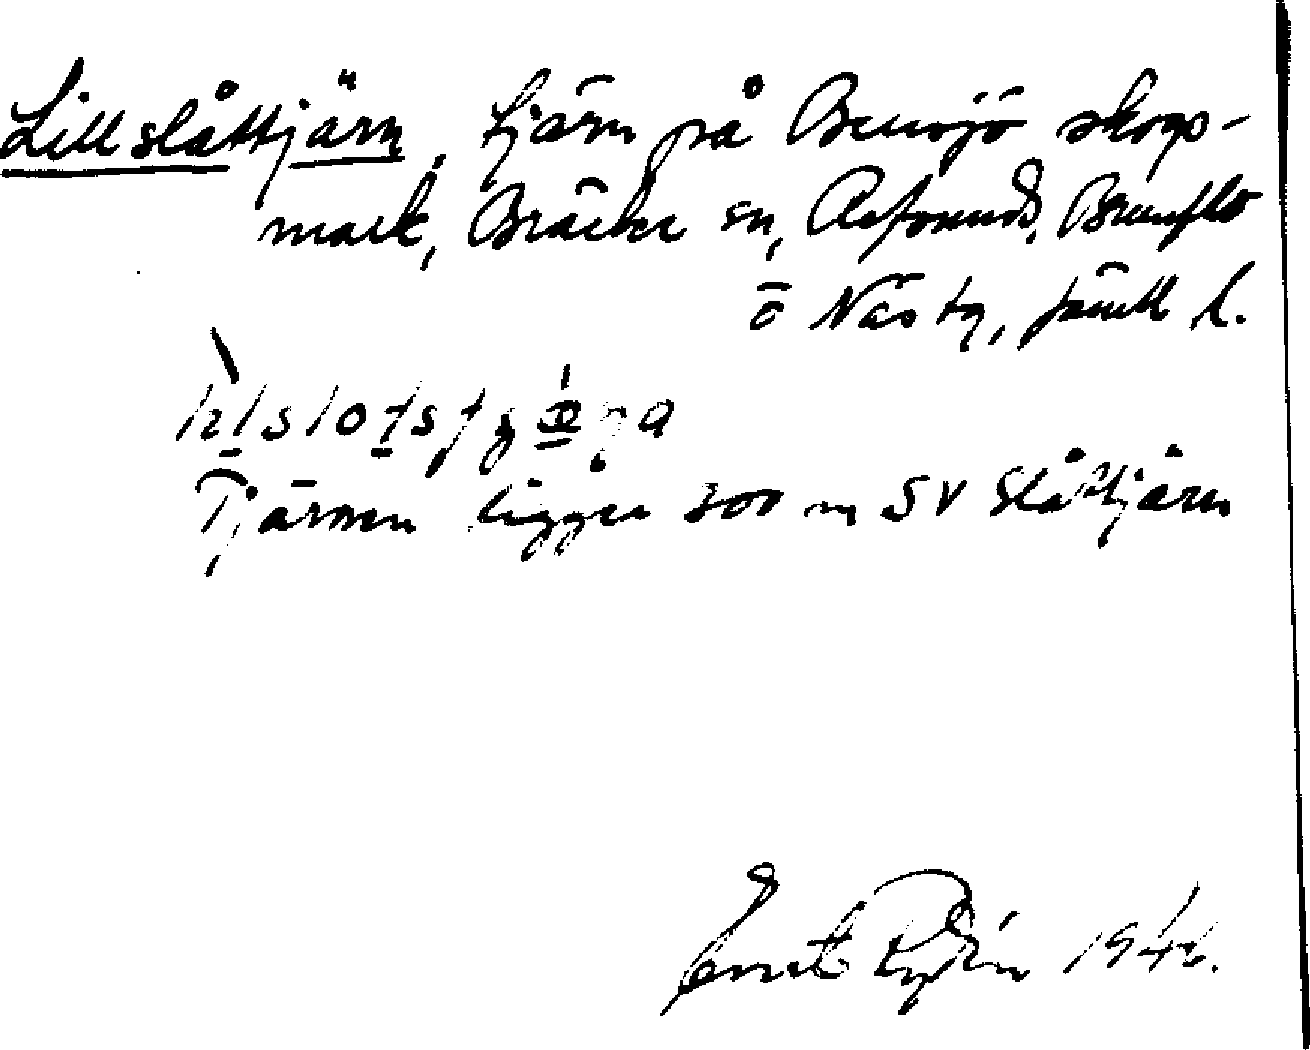 Lillslåttjärn, tjärn på Bensjö skogs-
mark, Bräcke sn, Refsunds, Brunflo
o Näs tg, Jämtl l.
Tjärnen ligger 300 m SV Slåttjärn
Ernst 1946.